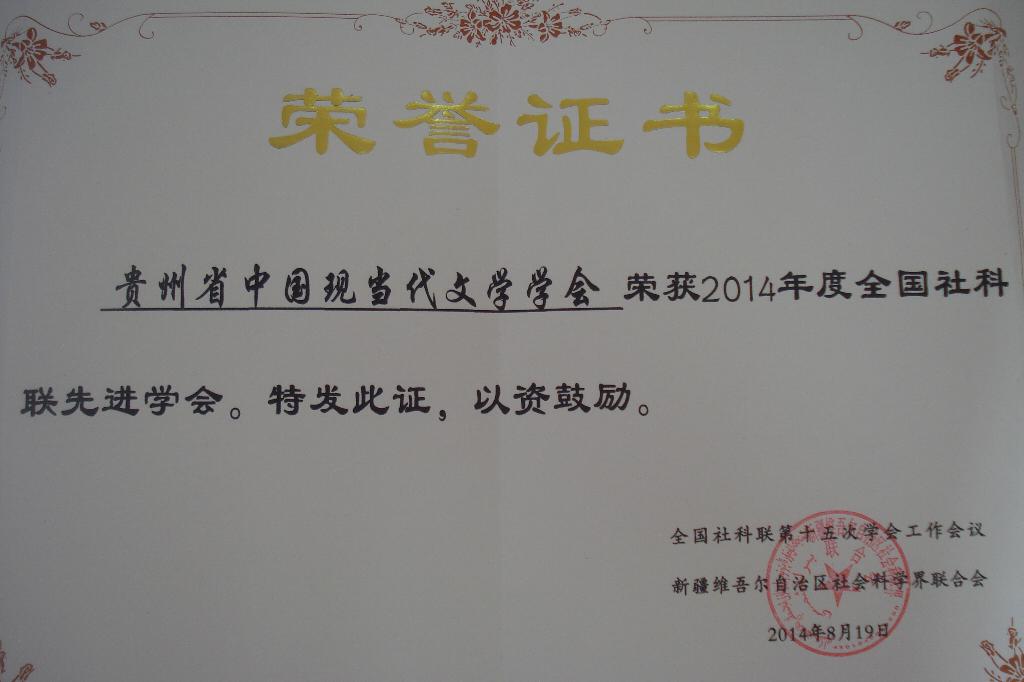 荣誉证书
贵州省中国现当代文学学会 荣获2014年度全国社科
联先进学会。特发此证，以资鼓励。
全国社科联第十五次学会工作会议
新疆维吾尔自治区社会科学界联合会
2014年8月19日